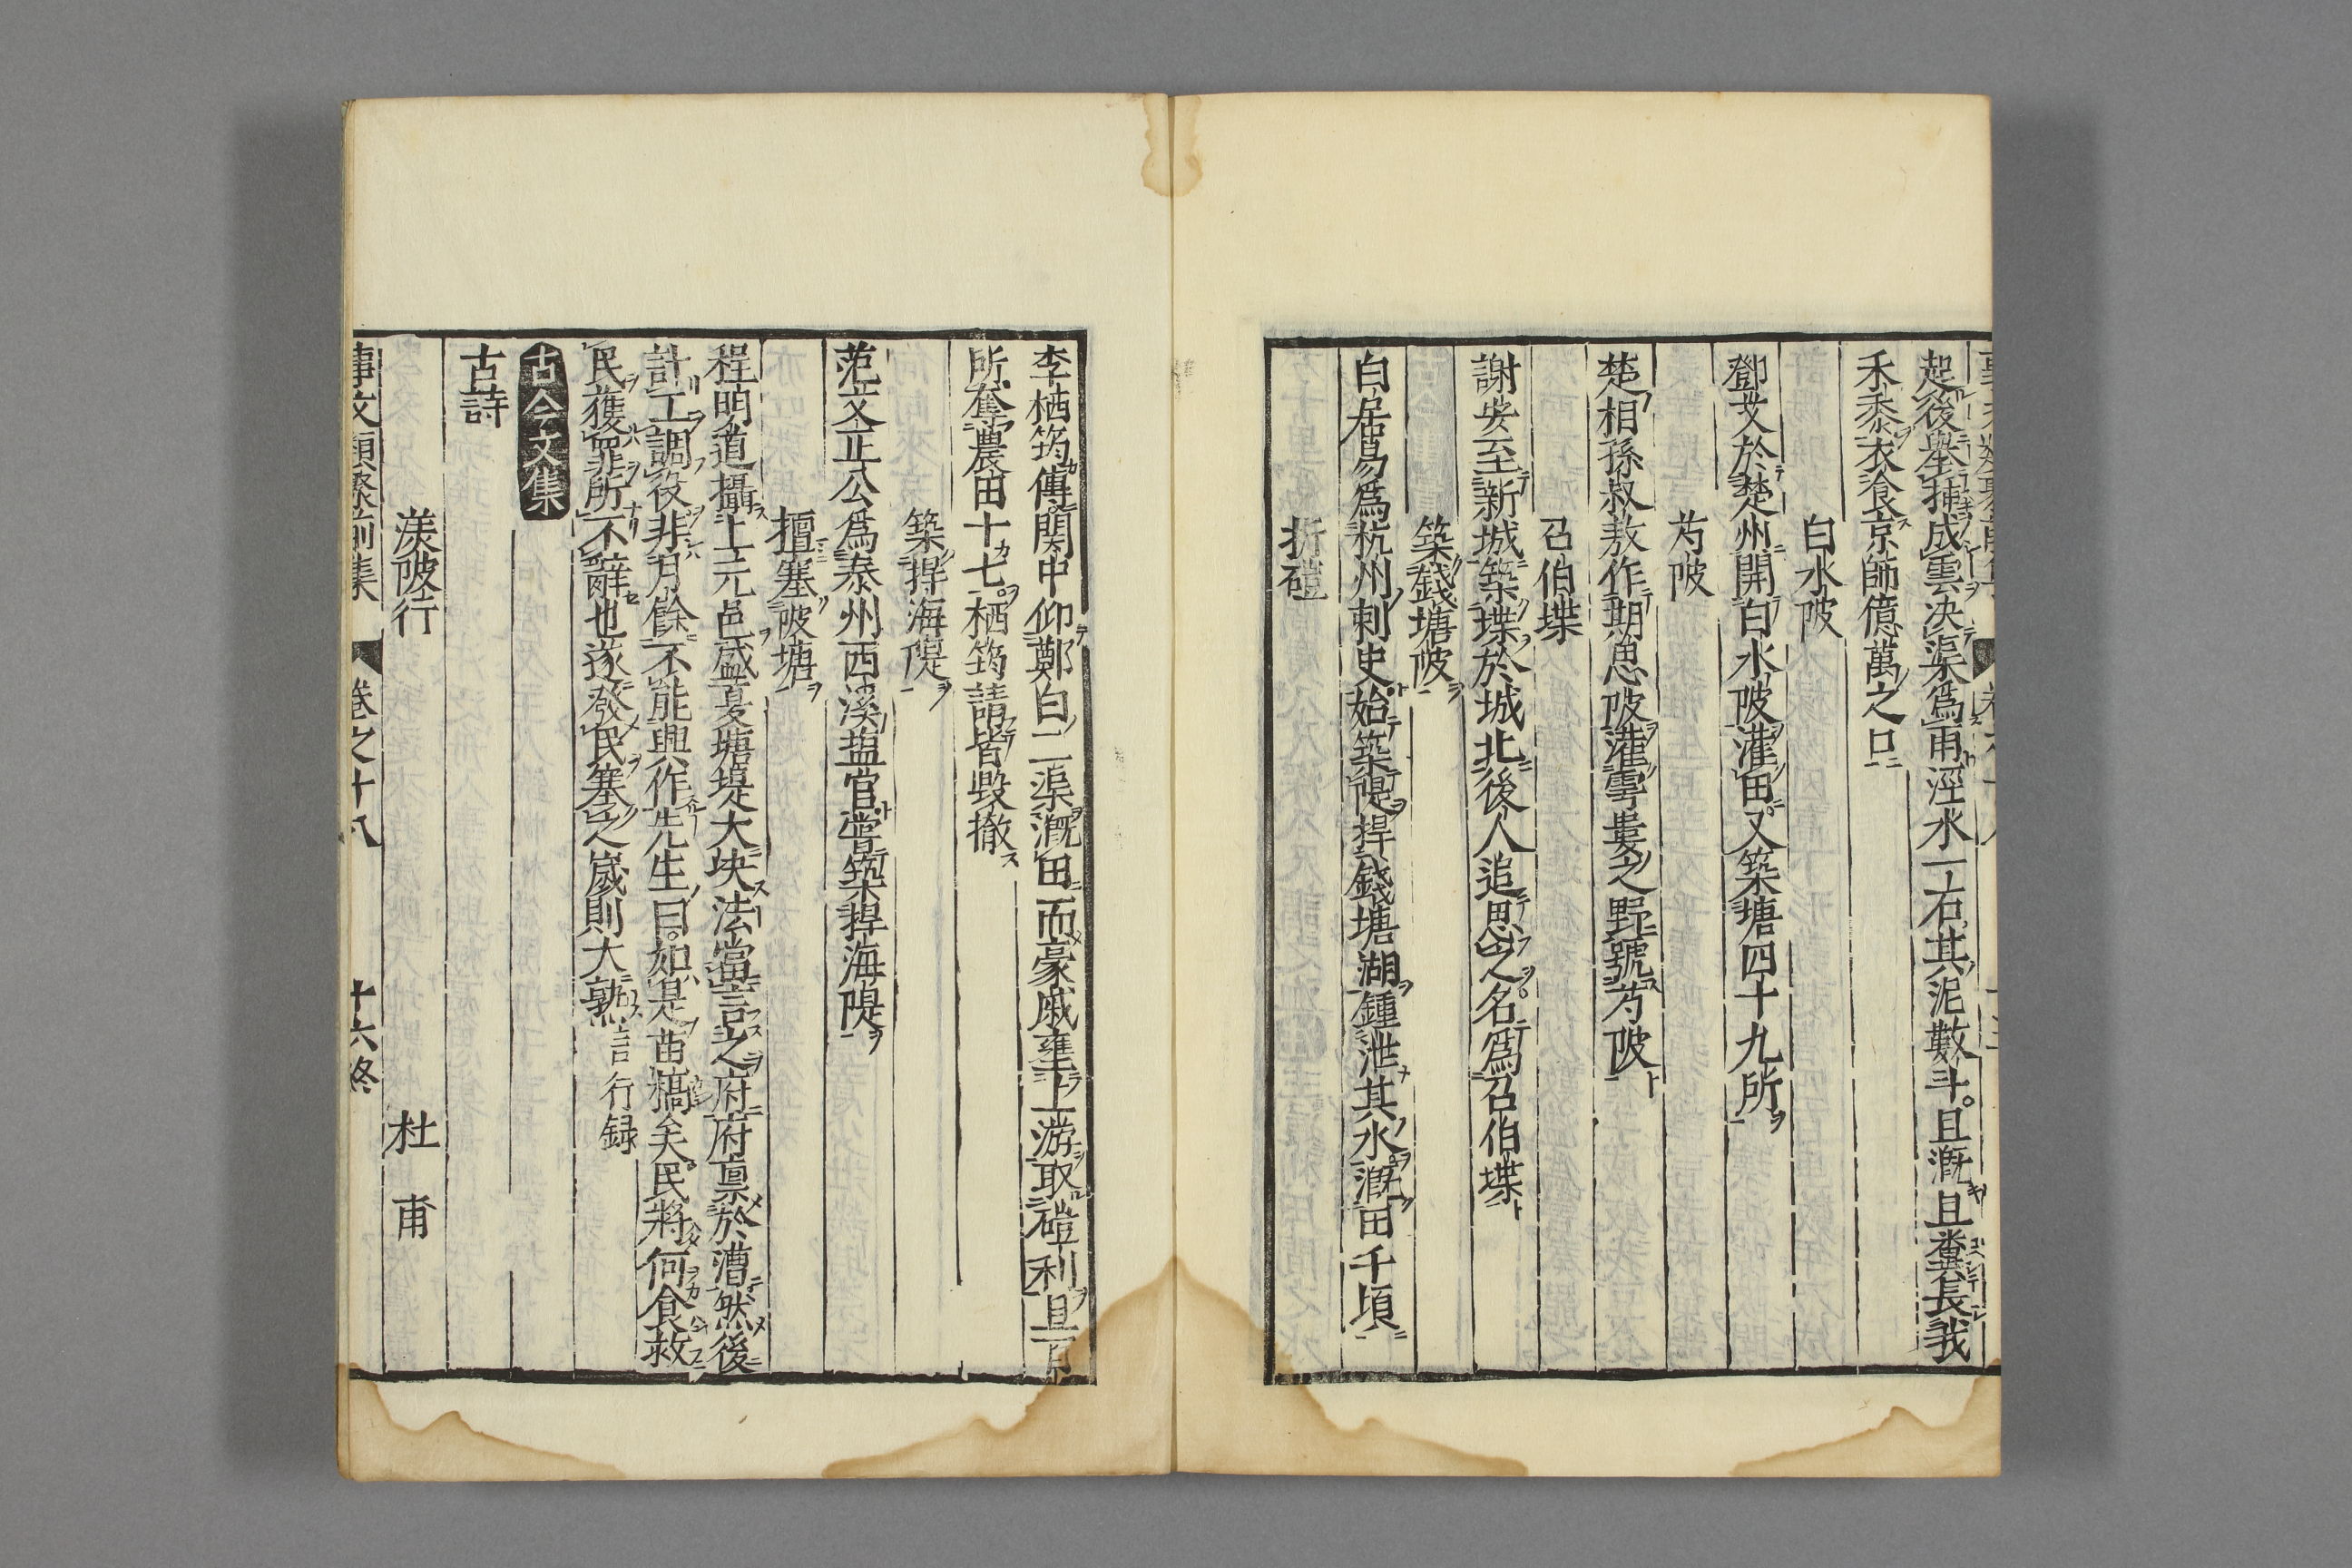 起後舉捶成雲决渠爲雨涇水一石其泥數斗且溉且糞長我
禾黍衣食京師億萬之口
白水陂
鄧艾於楚州開白水陂灌田又築塘四十九所
芍陂
楚相孫叔敖作期思陂灌雩婁之野號芍陂
召伯堞
謝安至新城築堞於城北後人追思之名爲召伯堞
築錢塘陂
白居易爲杭州刺史始築隄捍錢塘湖鍾泄其水溉田千頃
折磑
李栖筠傳關中仰鄭白二渠溉田而豪戚壅上游取磑利且百
所奪農田十七栖筠請皆毀撤
築捍海隄
范文正公爲泰州西溪塩官嘗築捍海隄
擅塞陂塘
程明道攝上元邑盛夏塘堤大垬法當言之府府稟於漕然後
計工調役非月餘不能興作先生曰如是苗槁矣民將何食救
民獲罪所不辭也遂發民塞之歲則大熟言行録
古今文集
古詩
渼陂行 杜甫
事文類聚前集 卷之十八 十六終